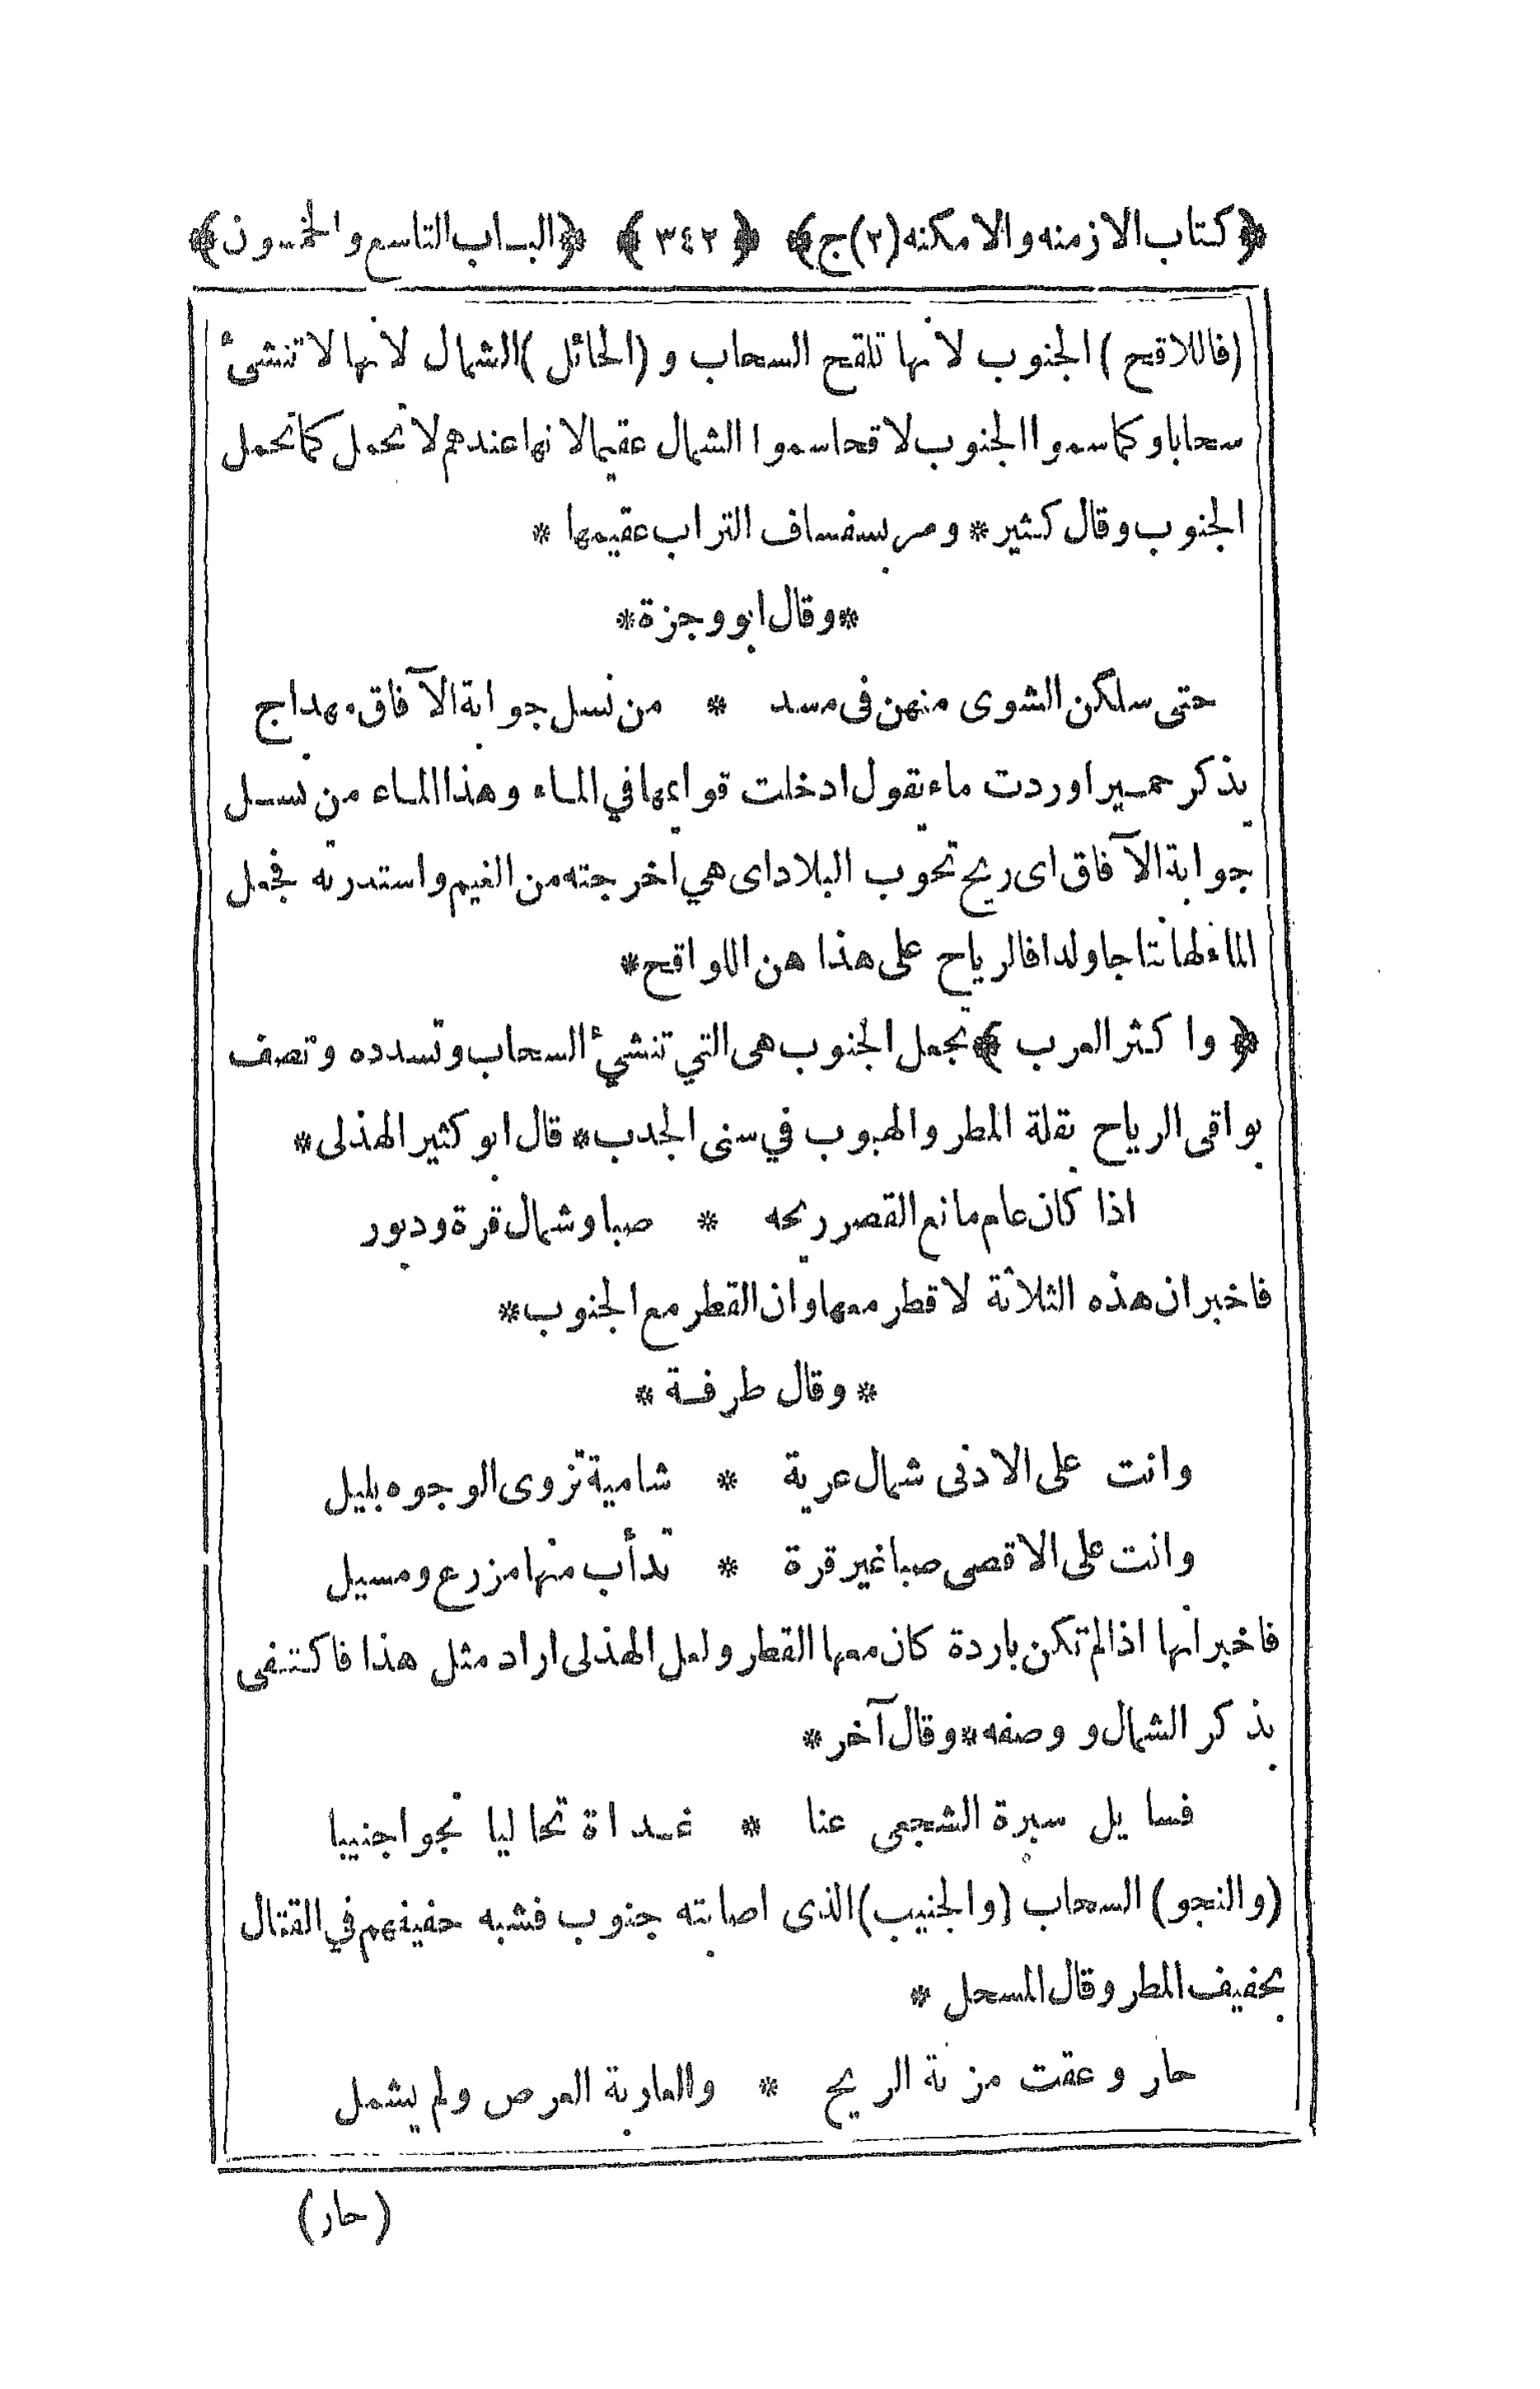 ﴿كتاب الازمنه والامكنه (٢) ج﴾ ﴿٣٤٢﴾ ﴿الباب التاسع والخمسون﴾
(فاللاقح) الجنوب لانها تلقح السحاب و (الحائل) الشمال لانها لا تنشئ
سحابا وكما سموا الجنوب لاقحا سموا الشمال عقيما لانها عندهم لا تحمل كما تحمل
الجنوب وقال كثير* ومر بسفساف التراب عقيمها *
*وقال ابو وجزة*
حتى سلكن الشوى منهن فى مسد * من نسل جوابة الآفاق مهداج
يذكر حميرا وردت ماء يقول ادخلت قوائمها في الماء وهذا الماء من نسل
جوابة الآفاق اى ريح تجوب البلاد اى هي اخرجته من الغيم واستدرته فجعل
الماء لها نتاجا ولدا فالرياح على هذا هن اللواقح*
﴿ واكثر العرب ﴾ تجعل الجنوب هى التي تنشئ السحاب وتسدده وتصف
بواقى الرياح بقلة المطر والهبوب في سنى الجدب* قال ابو كثير الهذلى*
اذا كان عام مانع القصر ريحه * صبا وشمال قرة ودبور
فاخبر ان هذه الثلاثة لا قطر معها وان القطر مع الجنوب*
* وقال طرفة *
وانت على الادنى شمال عرية * شامية تزوى الوجوه بليل
وانت على الاقصى صبا غير قرة * تدأب منها مزرع ومسيل
فاخبر انها اذا لم تكن باردة كان معها القطر ولعل الهذلى اراد مثل هذا فاكتفى
بذكر الشمال و وصفه* وقال آخر*
فسايل سبرة الشجعى عنا * غداة تحاليا نجوا جنيبا
(والنجو) السحاب (والجنيب) الذى اصابته جنوب فشبه حفيفهم في القتال
بحفيف المطر وقال المسحل *
حار وعقت مزنة الريح * والعاربة العرص ولم يشمل
(حار)